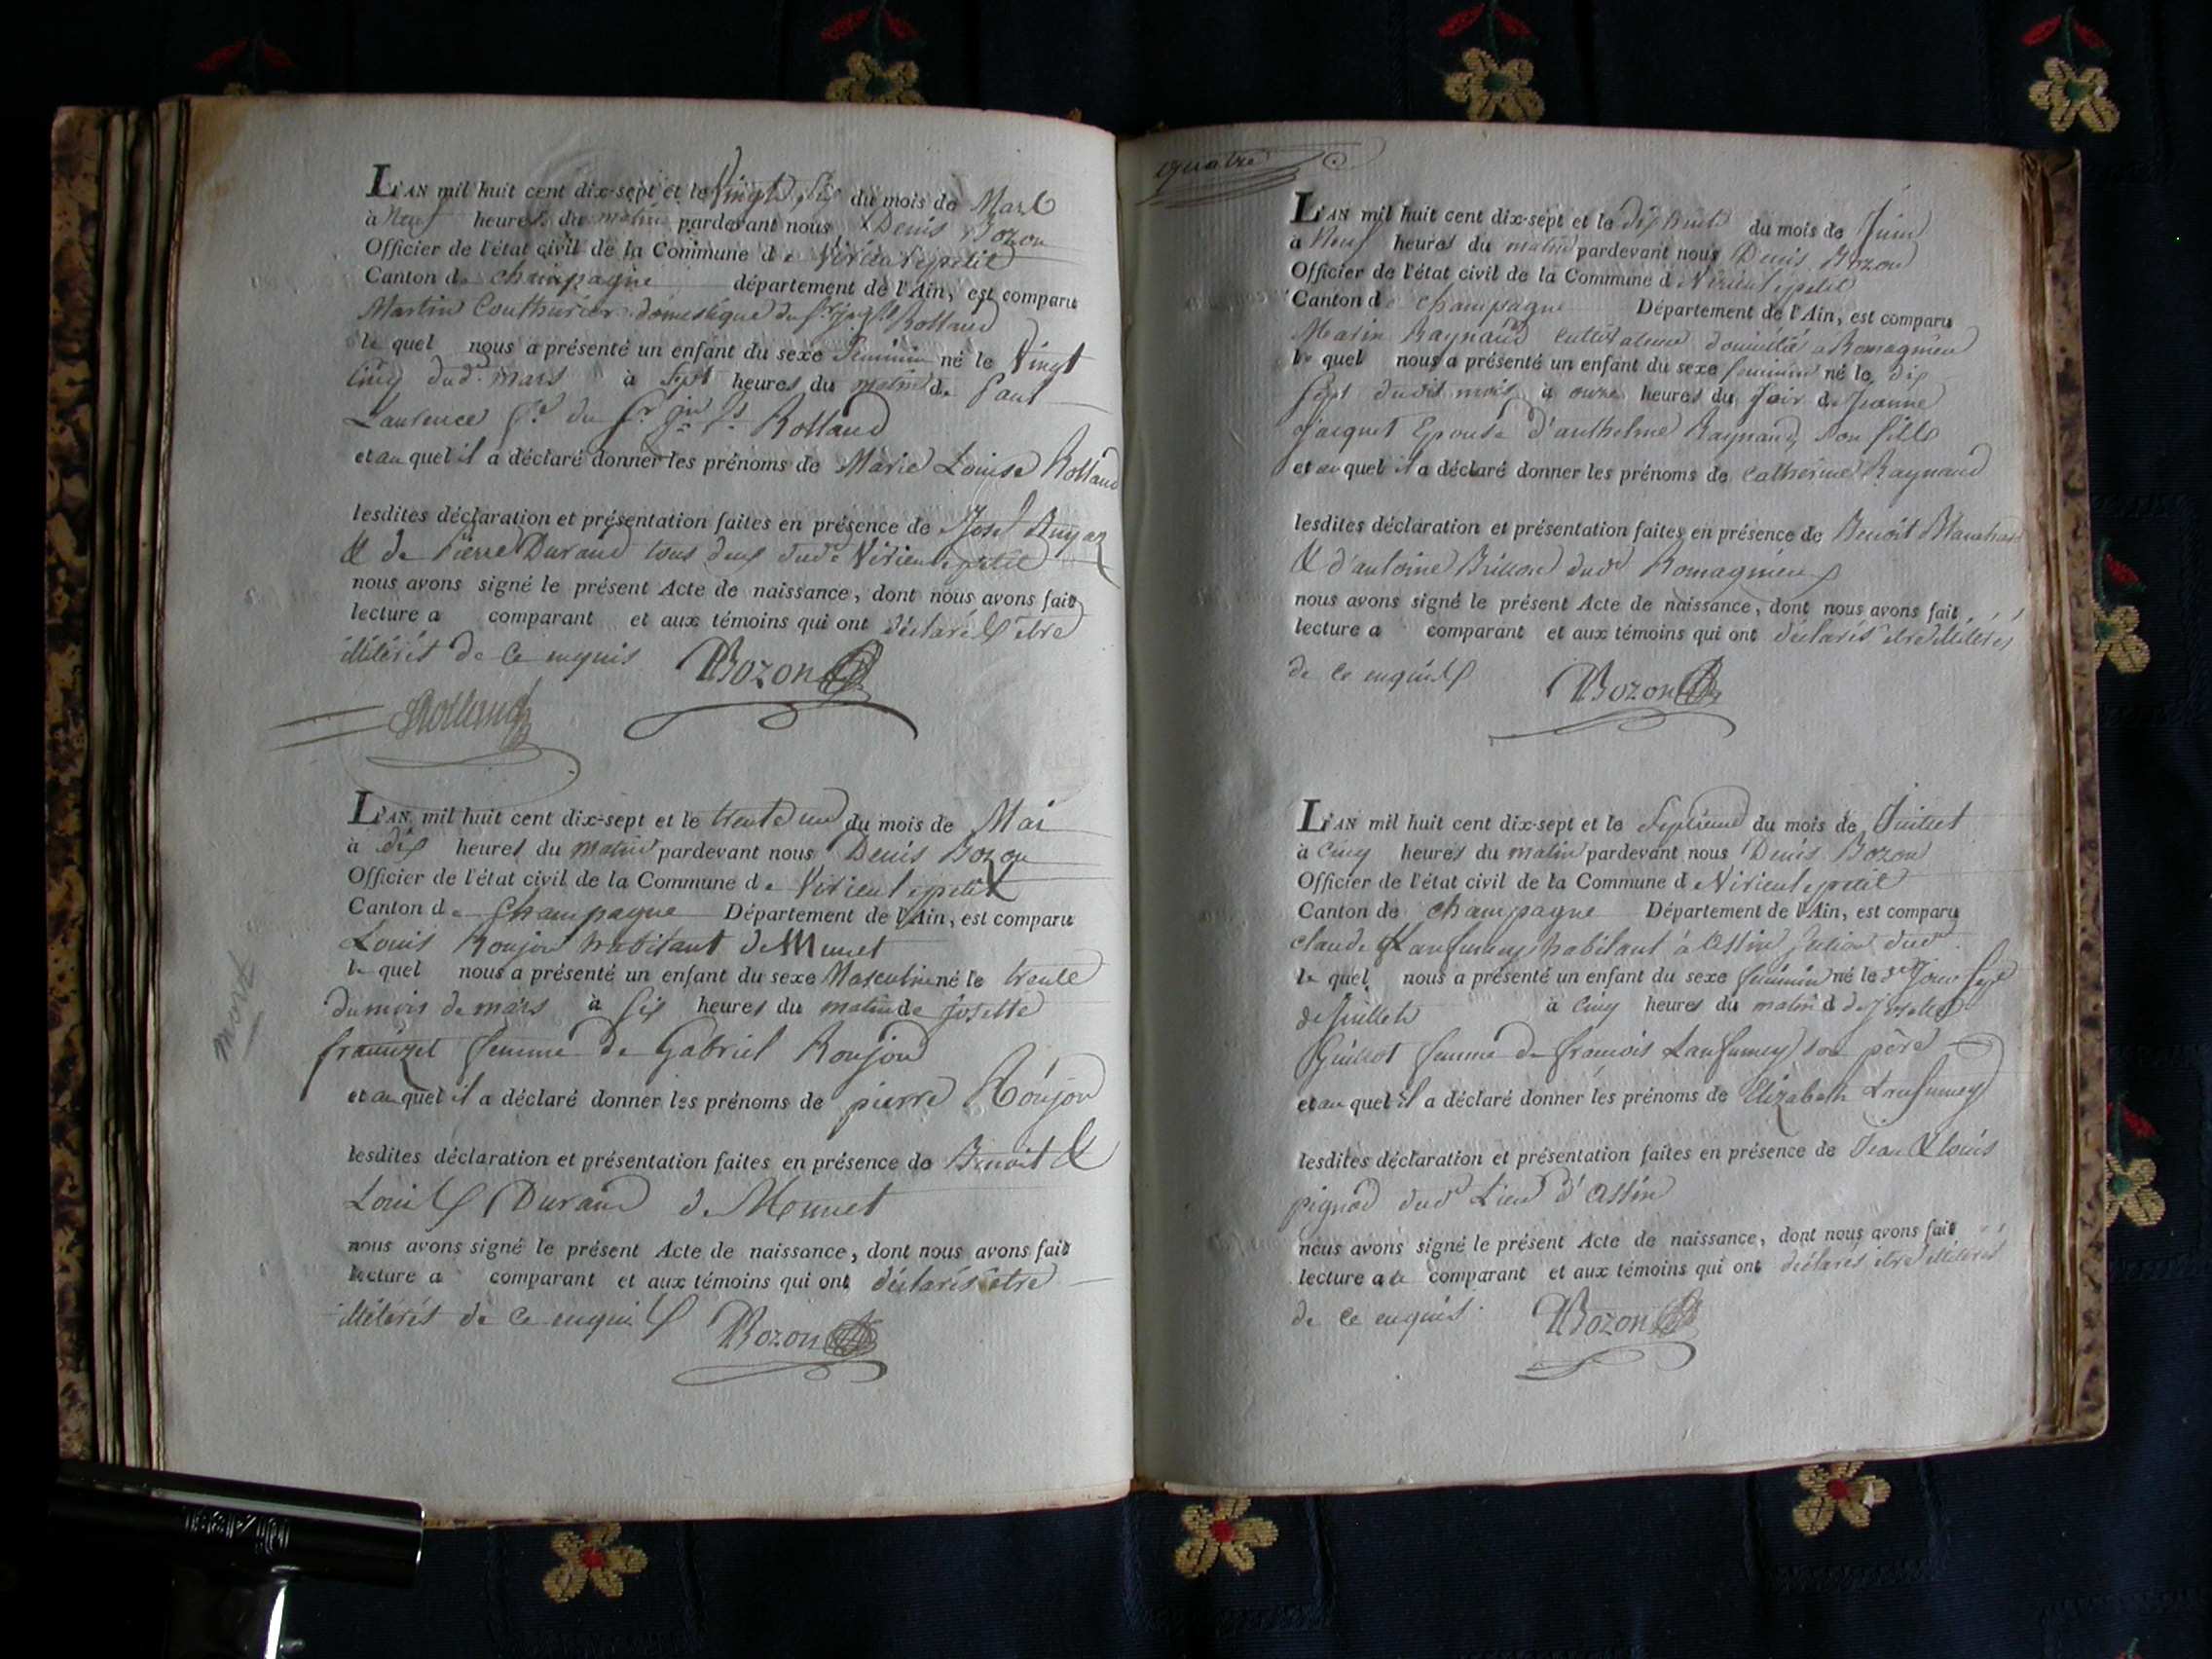 L'AN mil huit cent dix-sept et le vingt six du mois de Mars
à neuf heures du matin pardevant nous Denis Bozon
Officier de l'état civil de la Commune de Virieu le petit
Canton de champagne département de l'Ain, est comparu
Martin Couthurier domestique du Sr Rolland
le quel nous a présenté un enfant du sexe feminin né le Vingt
cinq dud. mars à sept heures du matin de
Laurence du Sr Rolland
et au quel il a déclaré donner les prénoms de Marie Louise Rolland
lesdites déclaration et présentation faites en présence de Josef
& de Pierre Durand tous deux dud. Virieu le petit
nous avons signé le présent Acte de naissance, dont nous avons fait
lecture a comparant et aux témoins qui ont déclarés être
illiterés de ce enquis Bozon
Rolland
L'AN mil huit cent dix-sept et le trente un du mois de Mai
à dix heures du matin pardevant nous Denis Bozon
Officier de l'état civil de la Commune de Virieu le petit
Canton de Champagne Département de l'Ain, est comparu
Louis Roujon habitant de Munet
le quel nous a présenté un enfant du sexe Masculin né le trente
du mois de mars à six heures du matin de Josette
femme de Gabriel Roujon
mort
et au quel il a déclaré donner les prénoms de pierre Roujon
lesdites déclaration et présentation faites en présence de Benoit &
Louis Durand de Munet
nous avons signé le présent Acte de naissance, dont nous avons fait
lecture a comparant et aux témoins qui ont déclarés etre
illiterés de ce enquis Bozon
quatre
L'AN mil huit cent dix-sept et le dix huit du mois de Juin
à Neuf heures du matin pardevant nous Denis Bozon
Officier de l'état civil de la Commune de Virieu le petit
Canton de champagne Département de l'Ain, est comparu
Marin Raynaud cultivateur domicilié a Romagnieu
le quel nous a présenté un enfant du sexe feminin né le dix
sept dudit mois à onze heures du soir de Jeanne
Jacquet Epouse d'anthelme Raynaud son fils
et au quel il a déclaré donner les prénoms de Catherine Raynaud
lesdites déclaration et présentation faites en présence de Benoit
& d'antoine Brillon dud. Romagnieu
nous avons signé le présent Acte de naissance, dont nous avons fait
lecture a comparant et aux témoins qui ont déclarés etre illiterés
de ce enquis Bozon
L'AN mil huit cent dix-sept et le Septieme du mois de Juillet
à cinq heures du matin pardevant nous Denis Bozon
Officier de l'état civil de la Commune de Virieu le petit
Canton de champagne Département de l'Ain, est comparu
claude Lanfumey habitant à Assin
le quel nous a présenté un enfant du sexe feminin né le Jour sept
de Juillet à cinq heures du matin de Josette
Guillot femme de francois Lanfumey son père
et au quel il a déclaré donner les prénoms de Elizabeth Lanfumey
lesdites déclaration et présentation faites en présence de Jean & louis
pignod dud. Lieu d'Assin
nous avons signé le présent Acte de naissance, dont nous avons fait
lecture a le comparant et aux témoins qui ont déclarés etre illiterés
de ce enquis Bozon